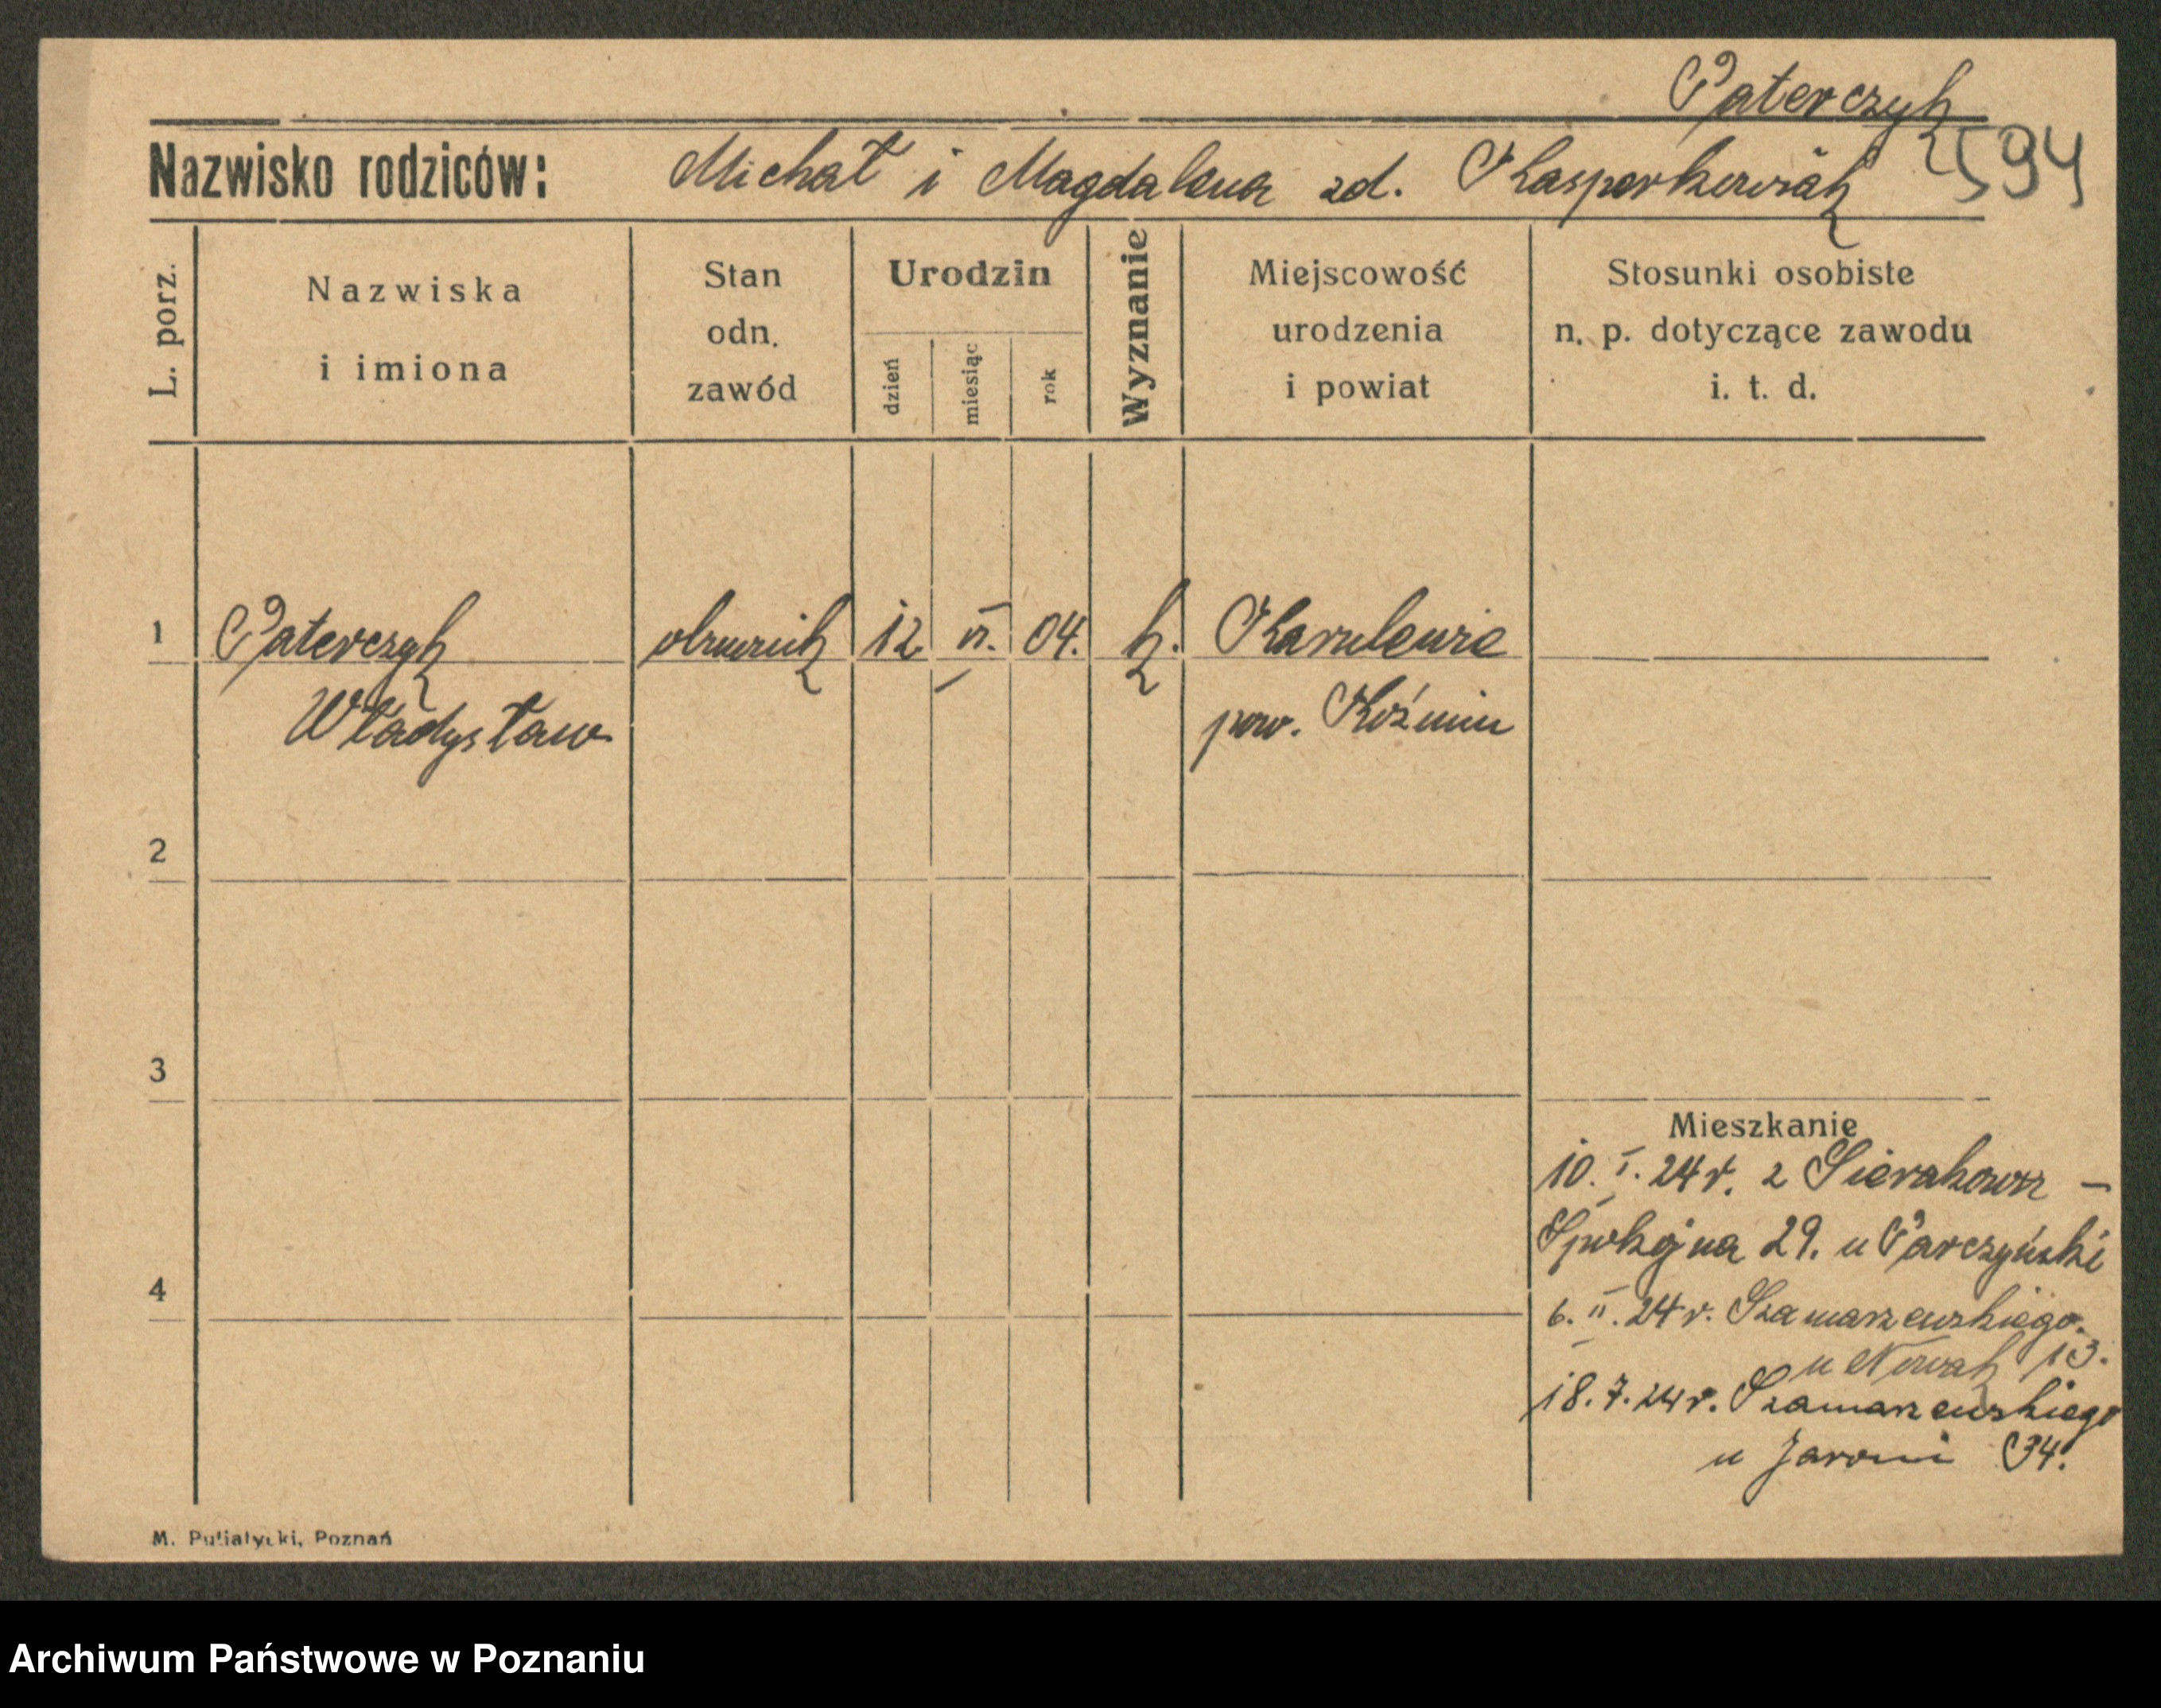 Paterczyk
Nazwisko rodziców: Michał i Magdalena zd. Kasperkowiak 594
L. porz.
Nazwiska
i imiona
Stan
odn.
zawód
Urodzin
dzień
miesiąc
rok
Wyznanie
Miejscowość
urodzenia
i powiat
Stosunki osobiste
n. p. dotyczące zawodu
i. t. d.
1 Paterczyk 12 VI. 04. k.
Władysław pow. Koźmin
2
3
4
Mieszkanie
10. I. 24 r. z Sierakowa –
Spokojna 29. u Parczyński
6. II. 24 r. Szamarzewskiego
u Nowak 13.
18. 7. 24 r. Szamarzewskiego
u 34.
M. Putiatycki, Poznań
Archiwum Państwowe w Poznaniu